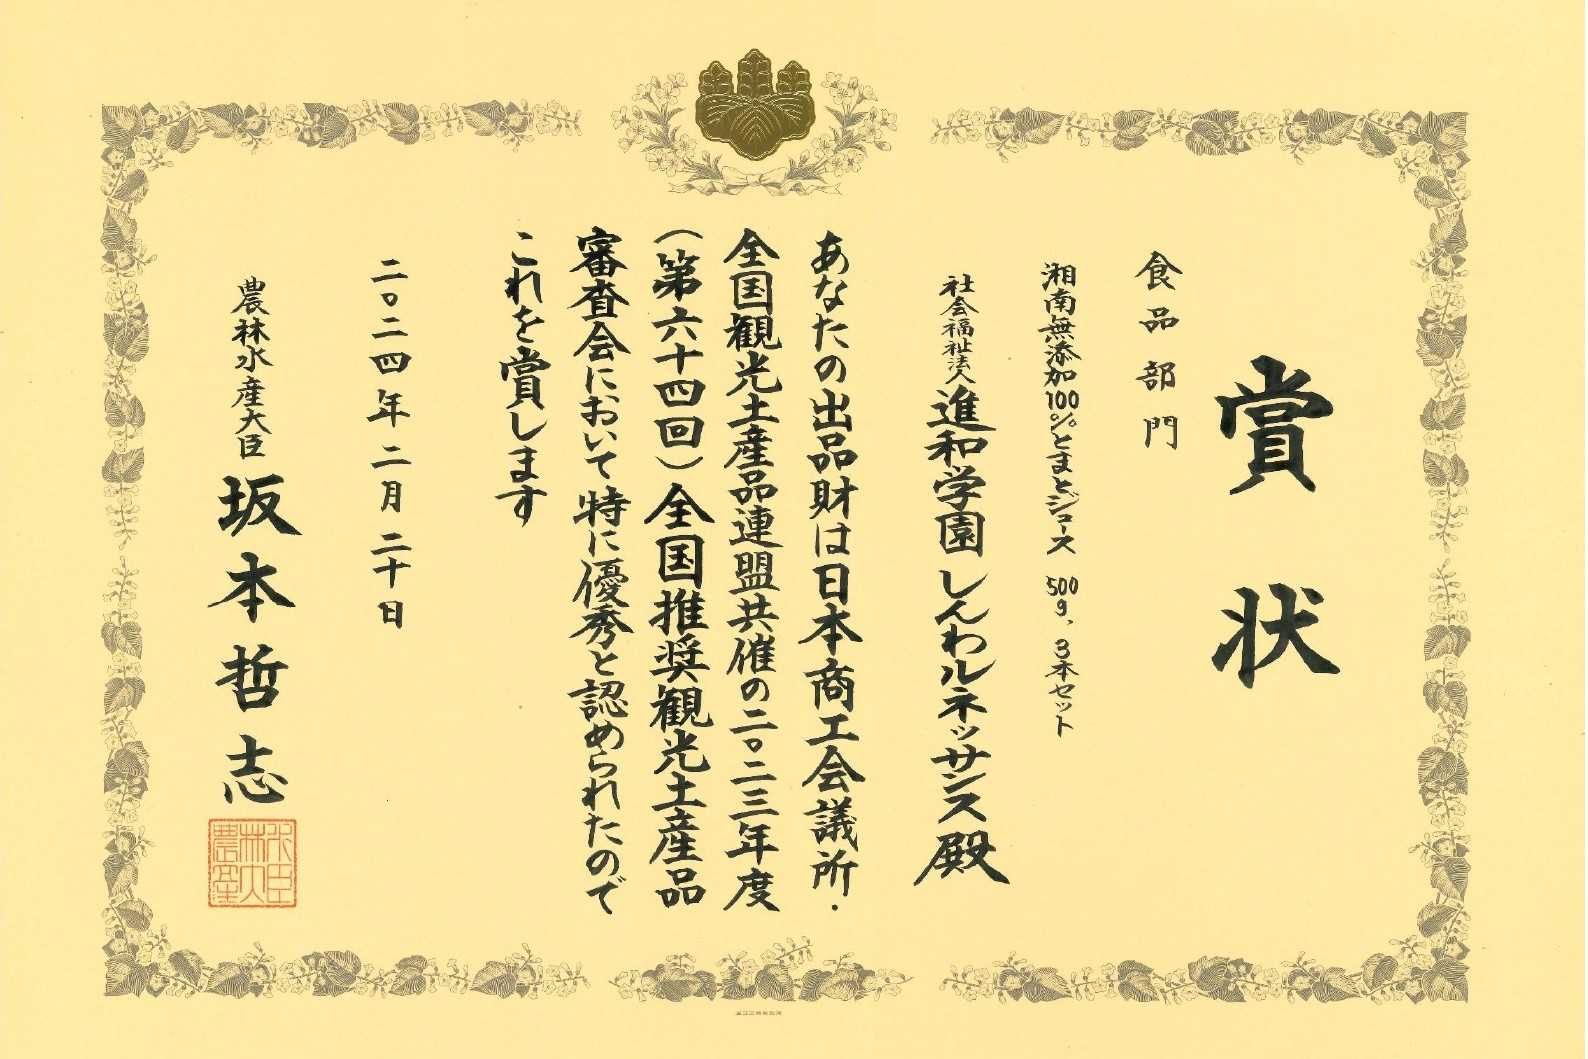 賞状
食品部門
湘南無添加100%とまとジュース 500g、3本セット
社会福祉法人進和学園 しんわルネッサンス 殿
あなたの出品財は日本商工会議所・
全国観光土産品連盟共催の二〇二三年度
(第六十四回)全国推奨観光土産品
審査会において特に優秀と認められたので
これを賞します
二〇二四年二月二十日
農林水産大臣 坂本哲志